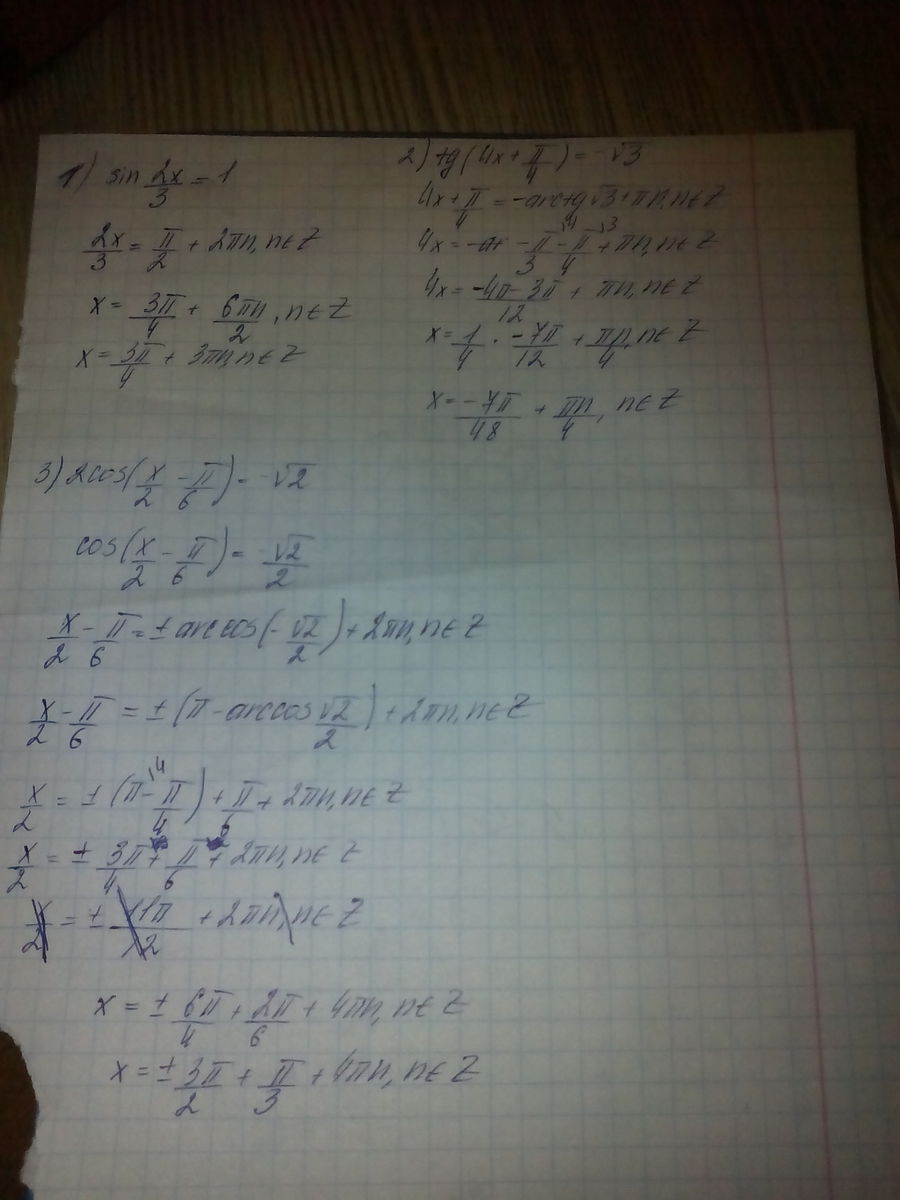 1) sin 2x/3 = 1
2x/3 = π/2 + 2πn, n∈Z
x = 3π/4 + 6πn/2, n∈Z
x = 3π/4 + 3πn, n∈Z
2) tg(4x + π/4) = -√3
4x + π/4 = -arctg√3 + πn, n∈Z
4x = - π/3 - π/4 + πn, n∈Z
4x = -4π-3π/12 + πn, n∈Z
x = 1/4 · -7π/12 + πn/4, n∈Z
x = -7π/48 + πn/4, n∈Z
3) 2cos(x/2 - π/6) = -√2
cos(x/2 - π/6) = -√2/2
x/2 - π/6 = ± arccos(-√2/2) + 2πn, n∈Z
x/2 - π/6 = ± (π - arccos √2/2) + 2πn, n∈Z
x/2 = ± (π - π/4) + π/6 + 2πn, n∈Z
x/2 = ± 3π/4 + π/6 + 2πn, n∈Z
x/2 = ± 11π/12 + 2πn, n∈Z
x = ± 6π/4 + 2π/6 + 4πn, n∈Z
x = ± 3π/2 + π/3 + 4πn, n∈Z